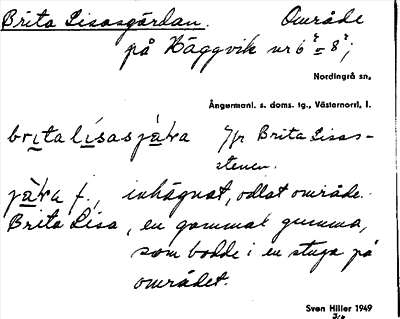 Brita Lisasgärdan. Område
på Häggvik nr 6² = 8²;
Nordingrå sn,
Ångermanl. s. doms. tg., Västernorrl. l.
britalisasjàka Jfr Brita Lisas-
stenen.
jàka f., inhägnat, odlat område.
Brita Lisa, en gammal gumma,
som bodde i en stuga på
området.
Sven Hiller 1949